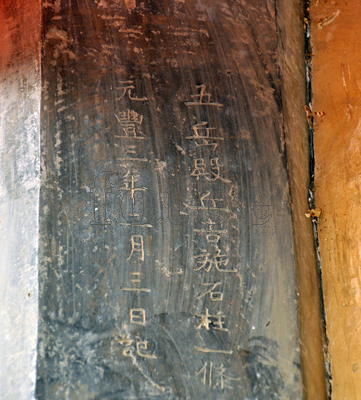 五岳殿丘吉施石柱一條
元豐三年二月三日記